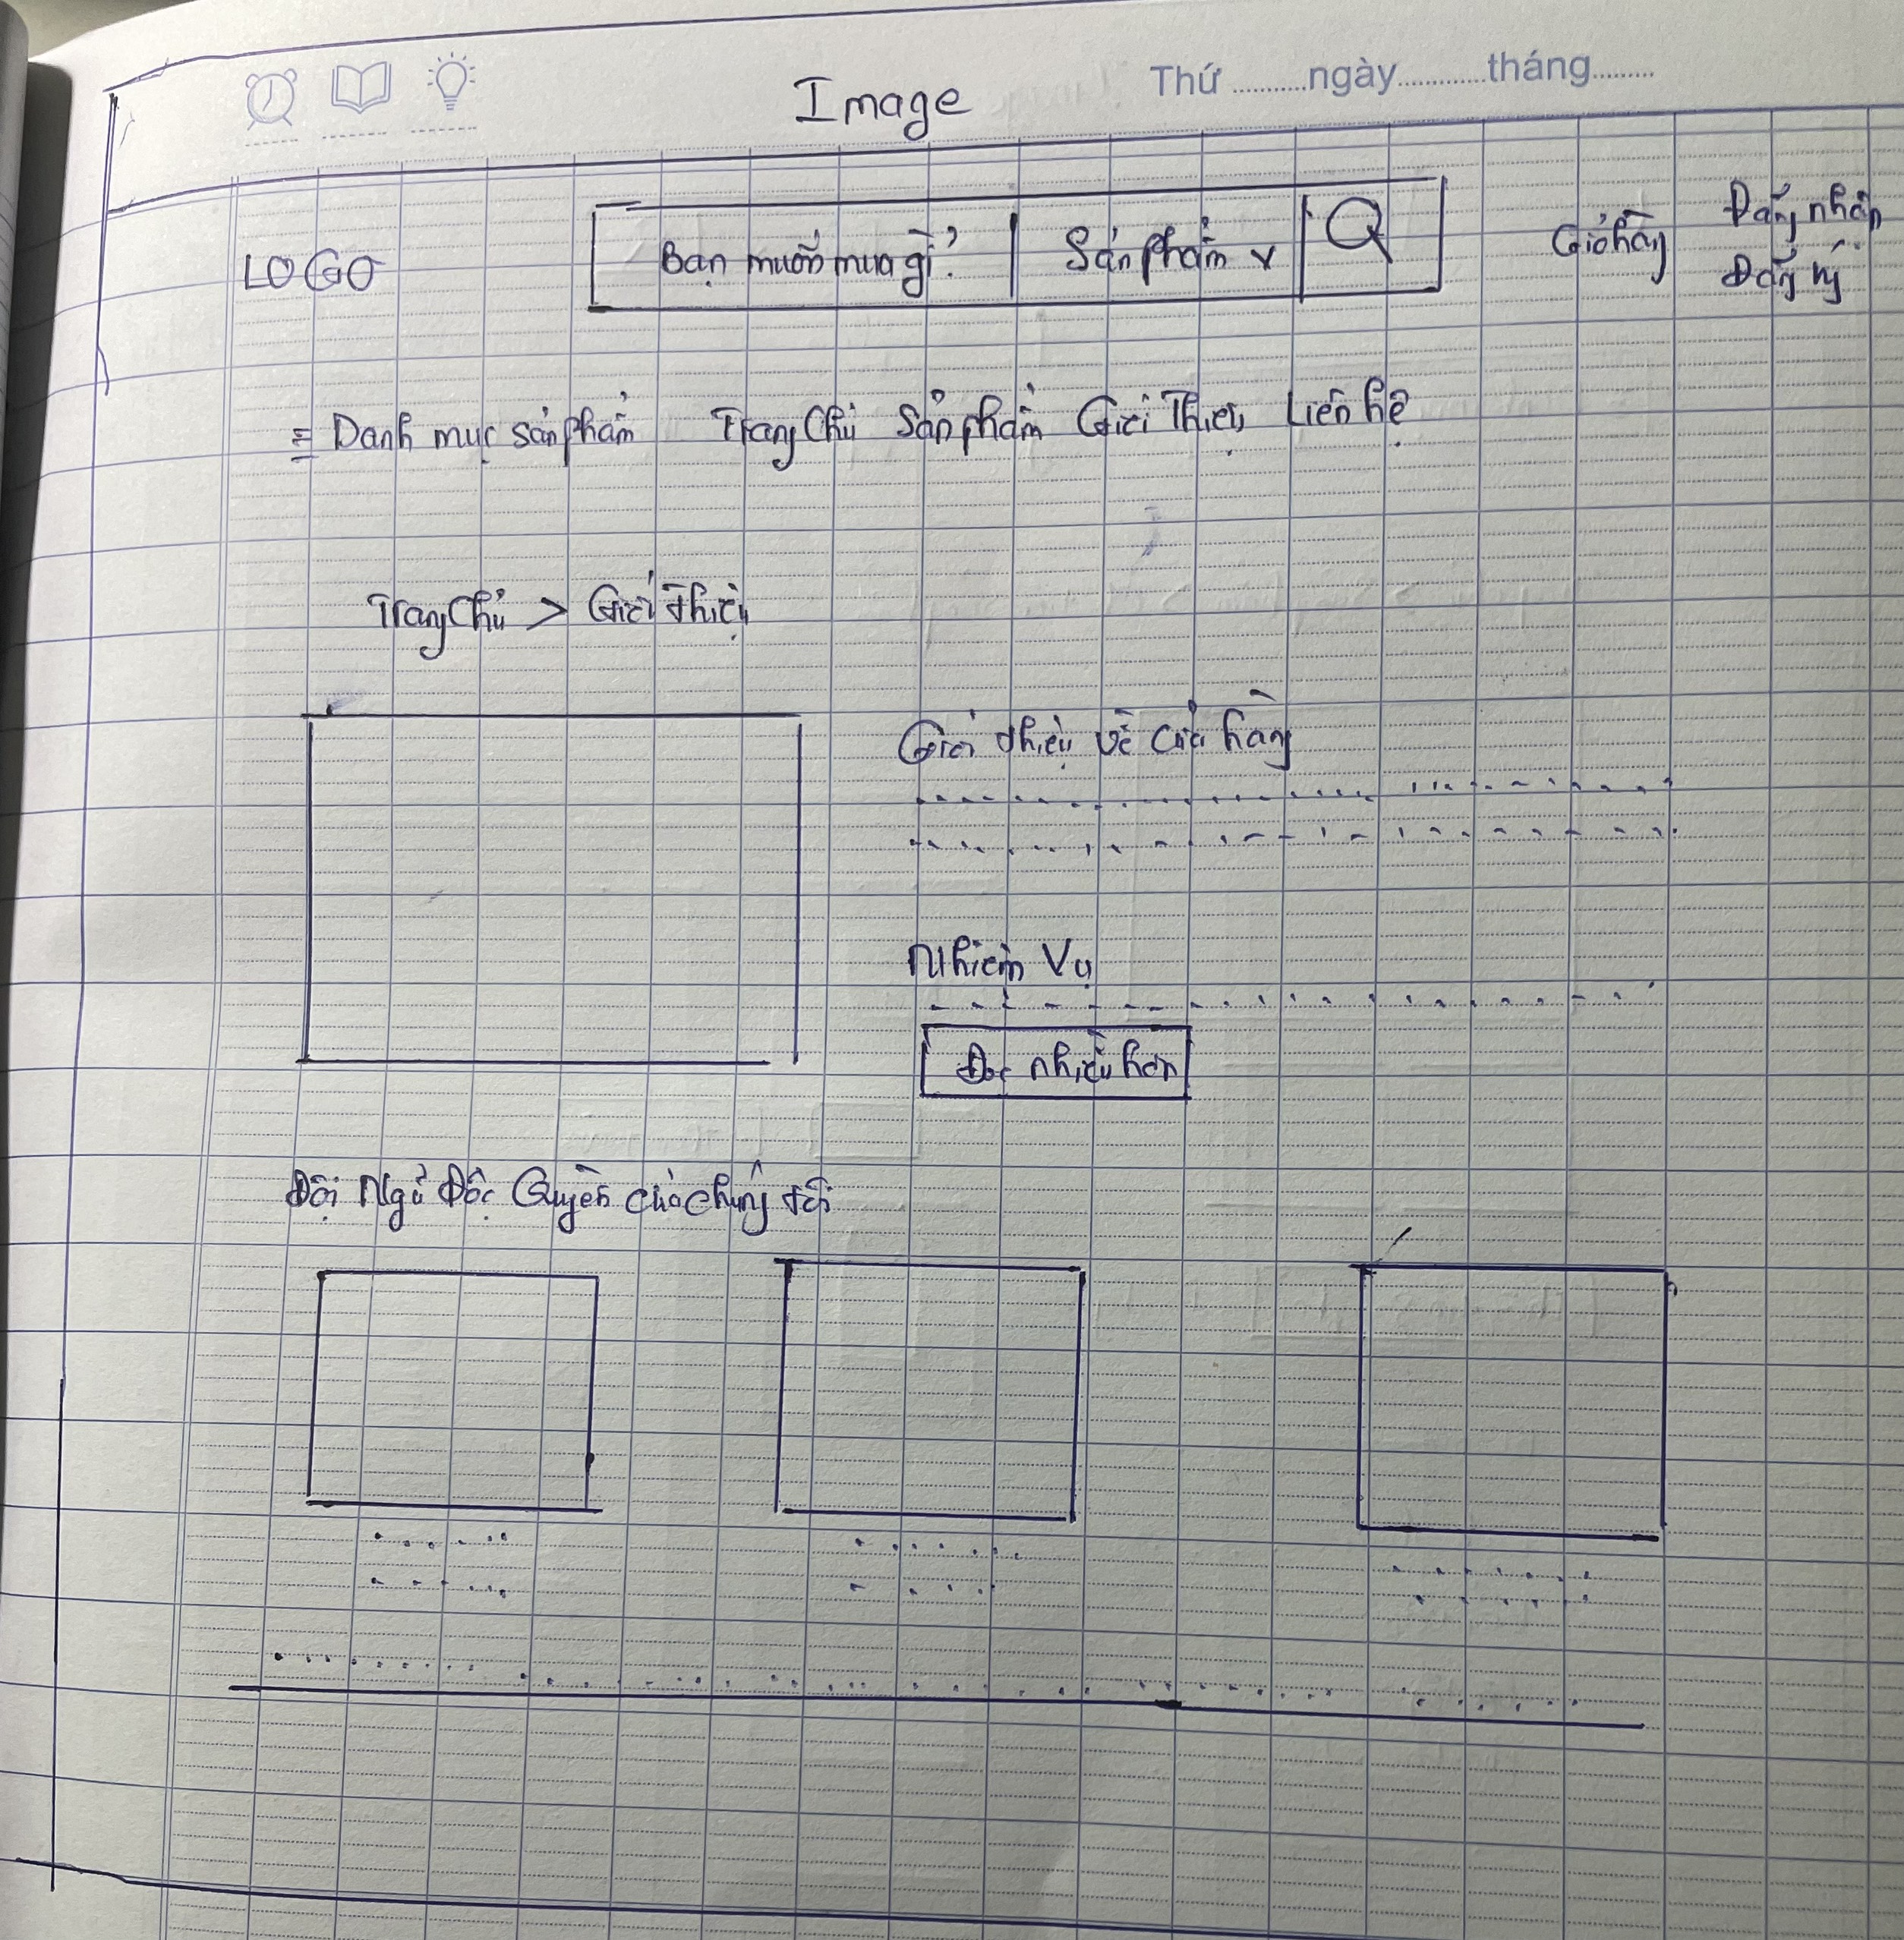 Image
Thứ ...........ngày.............tháng.........
LOGO
Bạn muốn mua gì?
Sản phẩm v
Giỏ hàng
Đăng nhập
Đăng ký
≡ Danh mục sản phẩm Trang Chủ Sản phẩm Giới Thiệu Liên hệ
Trang Chủ > Giới thiệu
Giới thiệu về cửa hàng
Nhiệm Vụ
Đọc nhiều hơn
Đội Ngũ Độc Quyền của chúng tôi